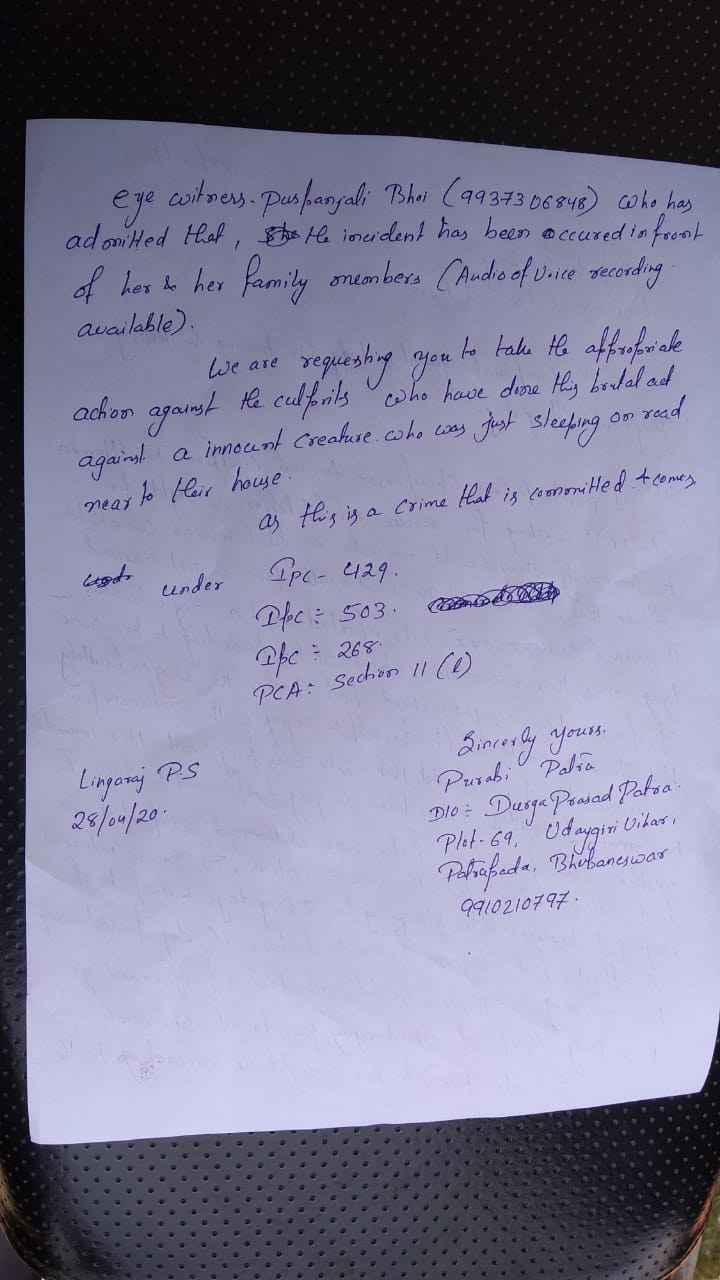 eye witness - Puspanjali Bhoi (9937306848) who has
admitted that, the incident has been occured in front
of her & her family members (Audio of Voice recording
available).
We are requesting you to take the appropriate
action against the culprits who have done this brutal act
against a innocent creature. who was just sleeping on road
near to their house.
as this is a crime that is committed & comes
under IPC - 429.
IPC : 503.
IPC : 268.
PCA : Section 11 (l)
Sincerly yours.
Purabi Patra
D/O : Durga Prasad Patra.
Plot - 69, Udaygiri Vihar,
Patrapada, Bhubaneswar
9910210797.
Lingaraj P.S
28/04/20.